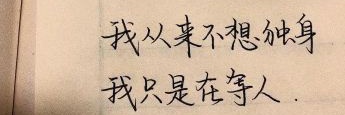 我从来不想独身
我只是在等人.